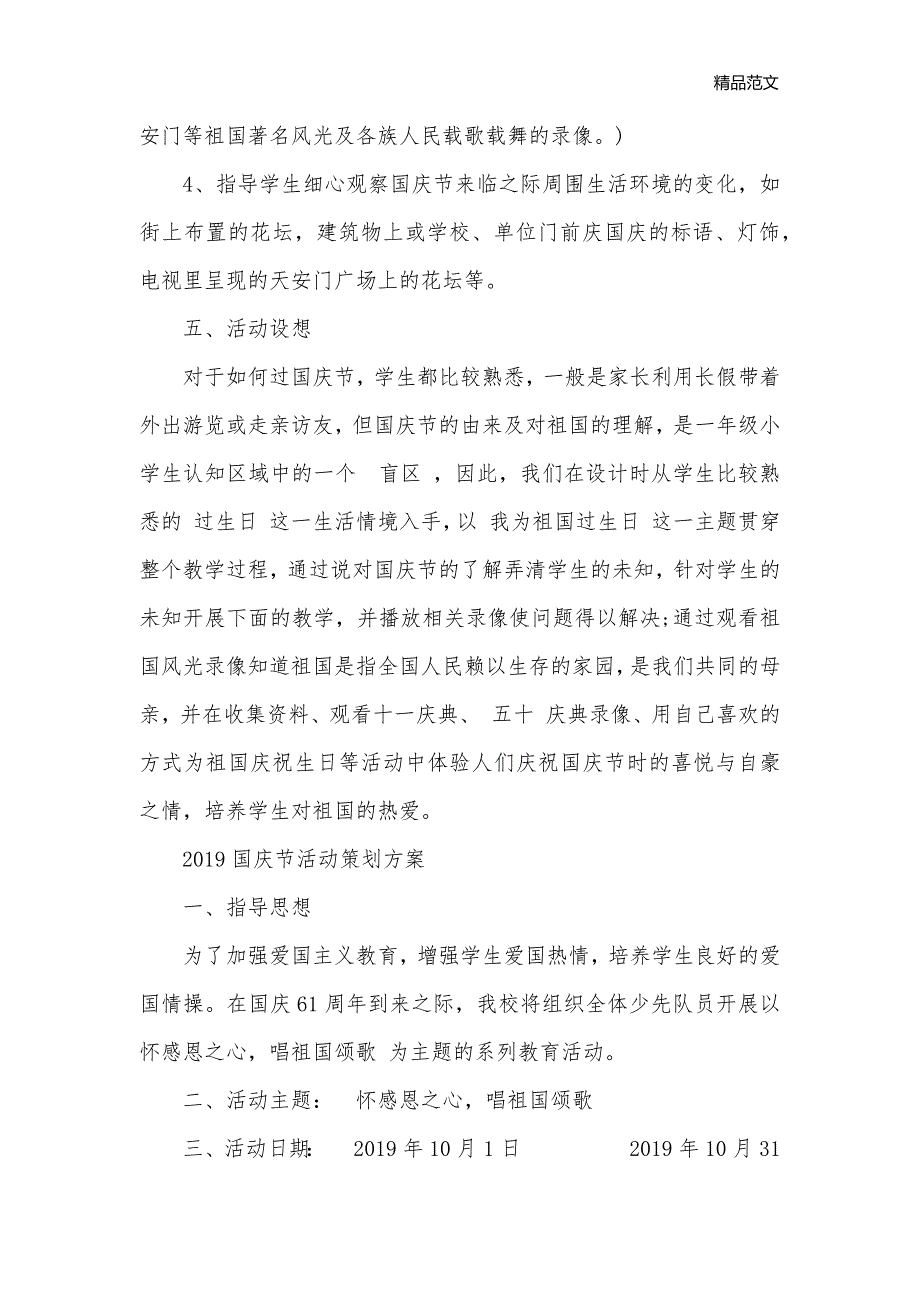 精品范文
安门等祖国著名风光及各族人民载歌载舞的录像。)
4、指导学生细心观察国庆节来临之际周围生活环境的变化，如
街上布置的花坛，建筑物上或学校、单位门前庆国庆的标语、灯饰，
电视里呈现的天安门广场上的花坛等。
五、活动设想
对于如何过国庆节，学生都比较熟悉，一般是家长利用长假带着
外出游览或走亲访友，但国庆节的由来及对祖国的理解，是一年级小
学生认知区域中的一个 盲区 ，因此，我们在设计时从学生比较熟
悉的 过生日 这一生活情境入手，以 我为祖国过生日 这一主题贯穿
整个教学过程，通过说对国庆节的了解弄清学生的未知，针对学生的
未知开展下面的教学，并播放相关录像使问题得以解决;通过观看祖
国风光录像知道祖国是指全国人民赖以生存的家园，是我们共同的母
亲，并在收集资料、观看十一庆典、 五十 庆典录像、用自己喜欢的
方式为祖国庆祝生日等活动中体验人们庆祝国庆节时的喜悦与自豪
之情，培养学生对祖国的热爱。
2019 国庆节活动策划方案
一、指导思想
为了加强爱国主义教育，增强学生爱国热情，培养学生良好的爱
国情操。在国庆 61 周年到来之际，我校将组织全体少先队员开展以
怀感恩之心，唱祖国颂歌 为主题的系列教育活动。
二、活动主题： 怀感恩之心，唱祖国颂歌
三、活动日期： 2019 年 10 月 1 日 2019 年 10 月 31